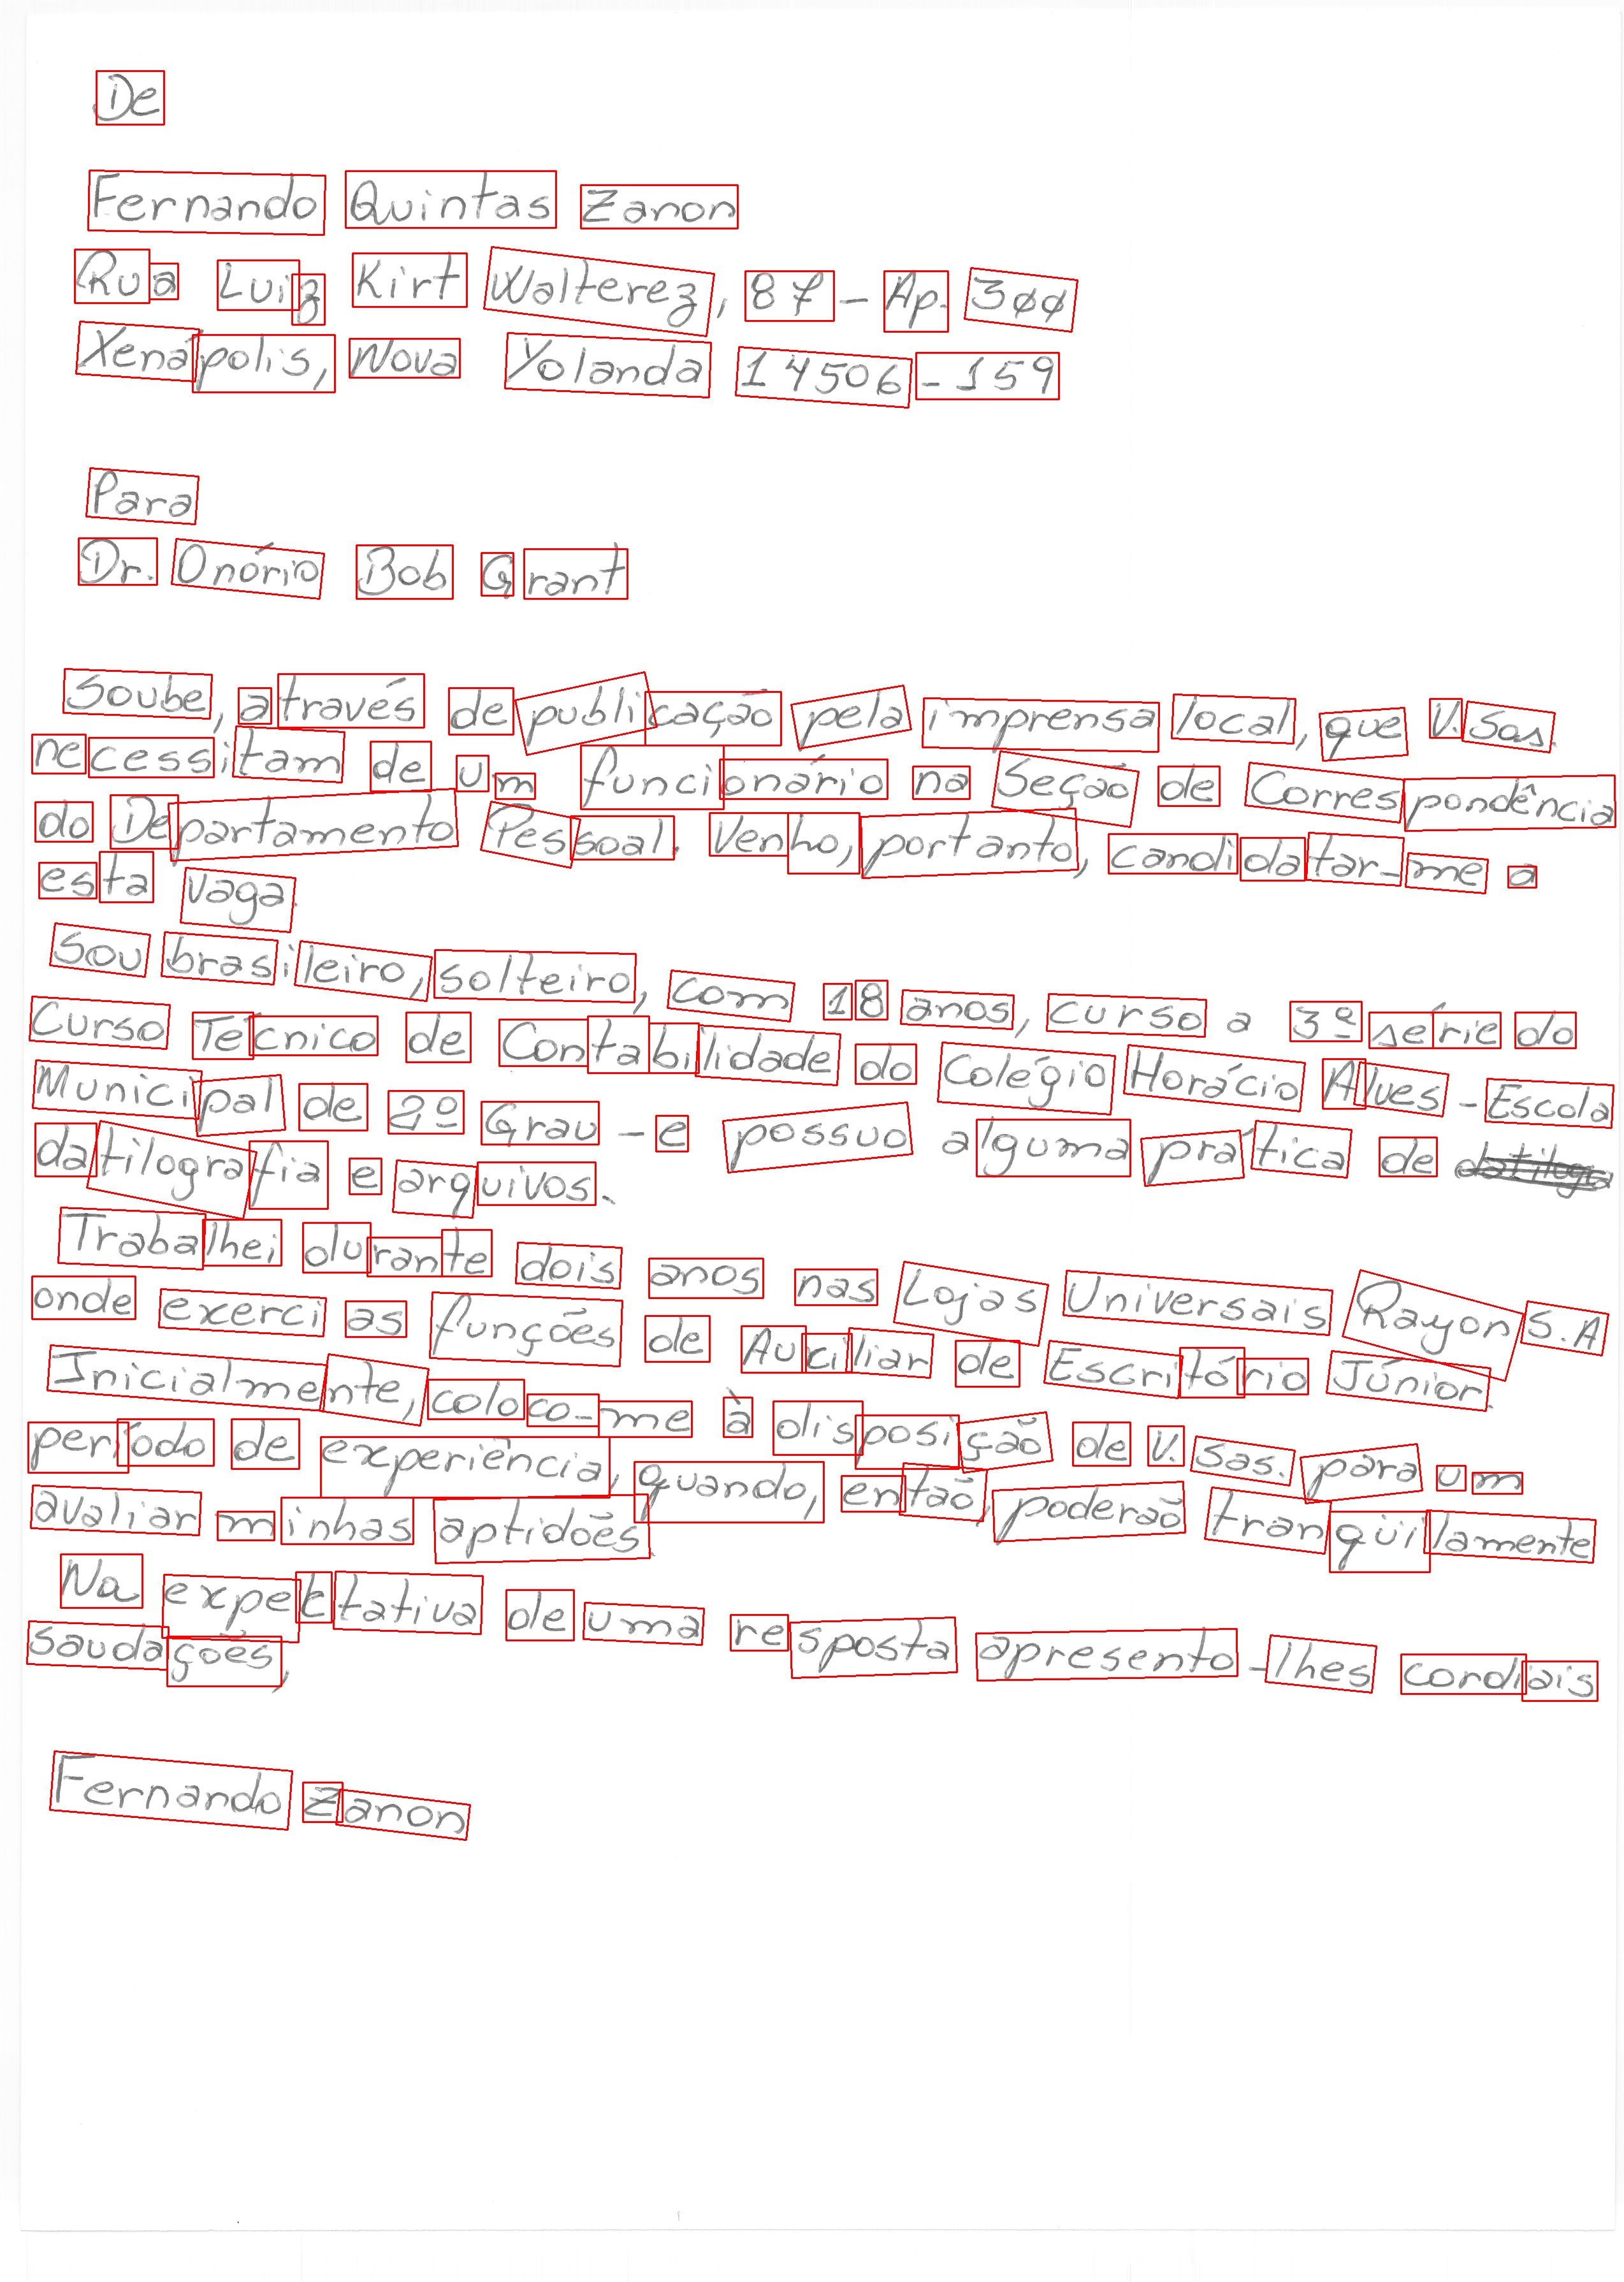 De
Fernando Quintas Zanon
Rua Luiz Kirt Walterez, 87 - Ap. 300
Xenápolis, Nova Yolanda 14506-159
Para
Dr. Onório Bob Grant
Soube, através de publicação pela imprensa local, que V. Sas.
necessitam de um funcionário na Seção de Correspondência
do Departamento Pessoal. Venho, portanto, candidatar-me a
esta vaga.
Sou brasileiro, solteiro, com 18 anos, curso a 3ª série do
Curso Técnico de Contabilidade do Colégio Horácio Alves - Escola
Municipal de 2º Grau - e possuo alguma prática de
datilografia e arquivos.
Trabalhei durante dois anos nas Lojas Universais Rayon S.A
onde exerci as funções de Auxiliar de Escritório Júnior.
Inicialmente, coloco-me à disposição de V. Sas. para um
período de experiência, quando, então, poderão tranqüilamente
avaliar minhas aptidões.
Na expectativa de uma resposta apresento-lhes cordiais
saudações,
Fernando Zanon